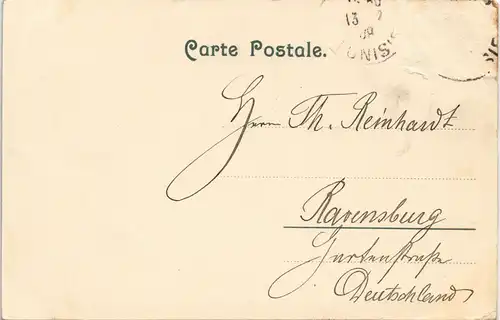 13
Carte Postale.
Herrn Th. Reinhardt
Ravensburg
Gartenstraße
Deutschland